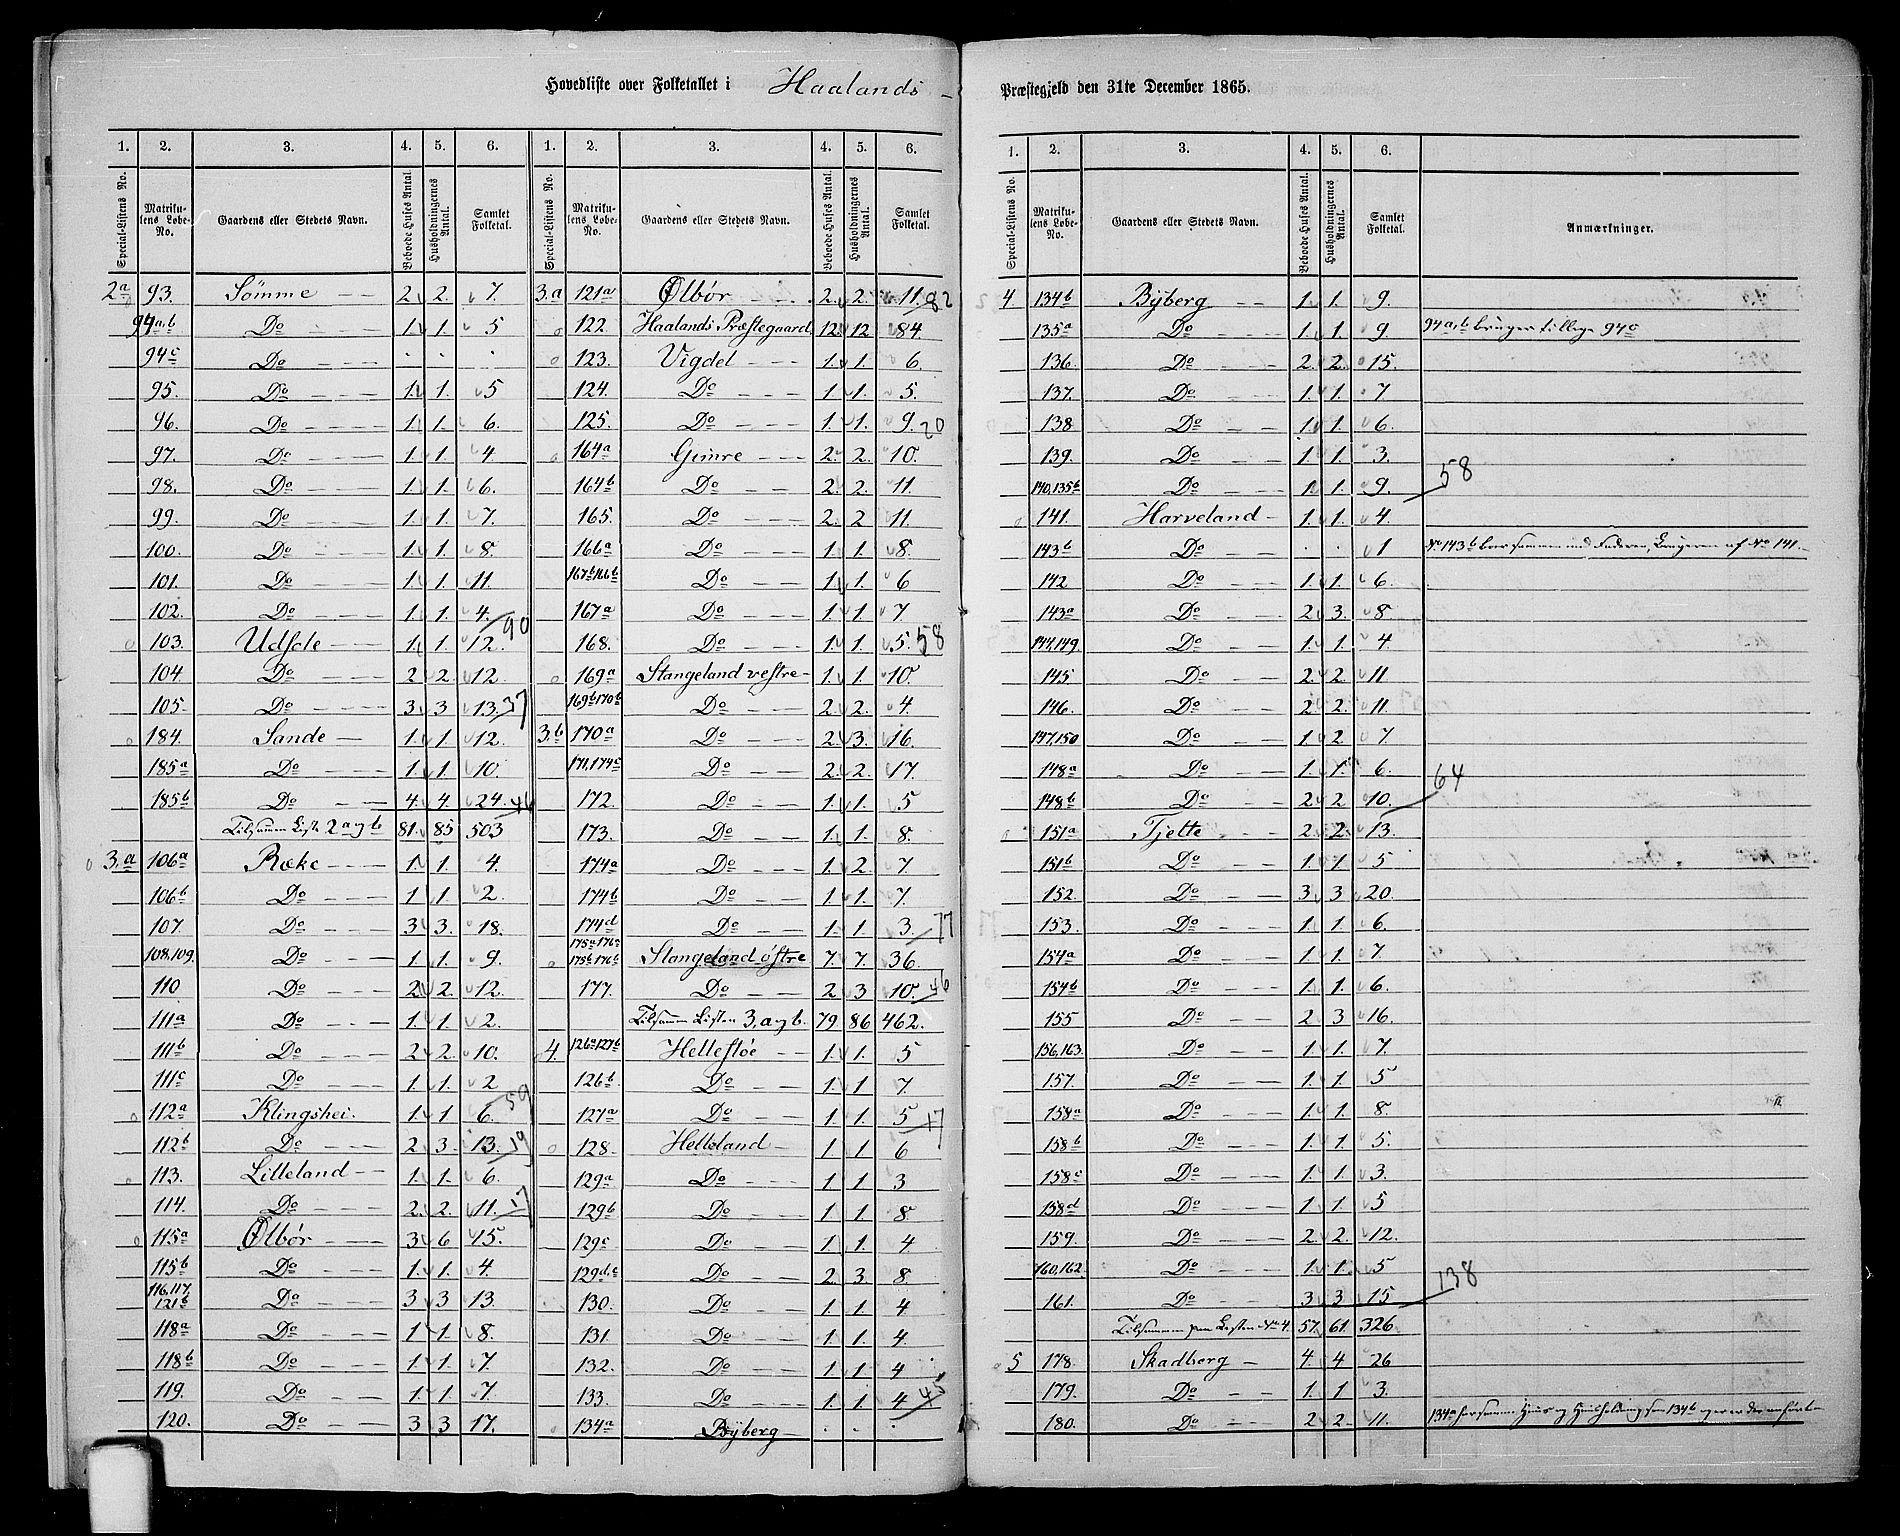 Hovedliste over Folketallet i Haalands - Præstegjeld den 31te December 1865.
1. 2. 3. 4. 5. 6. 1. 2. 3. 4. 5. 6.
Special-Listens No. Matrikulens Løbe-No. Gaardens eller Stedets Navn. Beboede Huses Antal. Husholdningernes Antal. Samlet Folketal. Special-Listens No. Matrikulens Løbe-No. Gaardens eller Stedets Navn. Beboede Huses Antal. Husholdningernes Antal. Samlet Folketal.
2a 93. Sömme 2. 2. 7.
94a.b Do 1. 1. 5
94c Do . . .
95. Do 1. 1. 5
96. Do 1. 1. 6.
97. Do 1. 1. 4
98. Do 1. 1. 6.
99. Do 1. 1. 7.
100. Do 1. 1. 8.
101. Do 1. 1. 11.
102. Do 1. 1. 4. 90
103. Udsole 1. 1. 12.
104. Do 2 2. 12.
105. Do 3. 3 13. 37
184. Sande 1. 1. 12.
185a Do 1. 1. 10.
185b Do 4. 4. 24. 46
Tilsammen Liste 2 a og b 81. 85 503
3.a 106a Ræke 1. 1. 4.
106b Do 1 1. 2.
107. Do 3 3. 18.
108.109. Do 1. 1. 9.
110 Do 2. 2. 12.
111a Do 1. 1. 2.
111b Do 2. 2. 10.
111c Do 1. 1. 2 59
112a Klingshei. 1. 1 6.
112b Do 2. 3. 13. 19
113. Lilleland 1. 1. 6.
114. Do 2. 2. 11. 17
115a Ølbør 3. 6 15.
115b Do 1. 1. 4.
116,117. 121b Do 3 3 13.
118a Do 1. 1. 8.
118b Do 1. 1. 7.
119. Do 1. 1. 7.
120. Do 3 3 17.
3.a 121a Ølbør 2. 2. 11. 82
122. Haalands Præstegaard 12. 12 84.
123. Vigdel 1. 1. 6
124. Do 1. 1. 5.
125. Do 1. 1. 9. 20
164a Gimre 2. 2. 10.
164b Do 2. 2. 11.
165. Do 2. 2 11.
166a Do 1. 1 8.
167b 166b Do 1. 1. 6
167a Do 1. 1 7
168. Do 1. 1. 5. 58
169a Stangeland vestre 1. 1. 10.
169b 170b Do 2. 2. 4.
3.b 170a Do 2. 3. 16.
171,174c Do 2. 2. 17.
172. Do 1. 1. 5
173. Do 1. 1. 8.
174a Do 1. 2. 7
174b Do 1. 1. 7.
174d Do 1. 1 3. 77
175a 176a 175b 176b Stangeland østre 7. 7. 36.
177. Do 2. 3 10. 46
Tilsammen Listen 3. a og b. 79. 86 462.
4. 126a 127b Hellestöe 1. 1. 5
126b. Do 1. 1 7.
127a Do 1. 1. 5 17
128. Helleland 1 1 6
129a Do 1 1. 3
129b Do 1. 1. 8.
129c Do 1. 1. 4
129d.e Do 2. 3. 8.
130. Do 1. 1. 4
131. Do 1. 1. 4.
132. Do 1. 1. 4
133. Do 1. 1. 4 45
134a Byberg . . .
1. 2. 3. 4. 5. 6.
Special-Listens No. Matrikulens Løbe-No. Gaardens eller Stedets Navn. Beboede Huses Antal. Husholdningernes Antal. Samlet Folketal. Anmærkninger.
4 134b Byberg 1. 1. 9.
135a Do 1. 1. 9. 94a,b bruger tillige 94c
136. Do 2. 2. 15.
137. Do 1. 1. 7
138 Do 1. 1. 6.
139. Do 1. 1. 3.
140,135b Do 1. 1. 9. 58
141. Harveland 1. 1. 4.
143b Do . . 1 No 143b boer sammen med Faderen, Brugeren af No 141.
142 Do 1. 1. 6.
143a Do 2. 3. 8.
144,149. Do 1. 1. 4
145 Do 2. 2. 11
146. Do 2. 2. 11.
147,150 Do 1. 2. 7
148a Do 1. 1. 6.
148b Do 2. 2 10. 64
151a Tjelte 2. 2. 13.
151b Do 1. 1. 5
152. Do 3. 3 20.
153. Do 1. 1 6.
154a Do 1. 1. 7.
154b Do 1. 1. 6.
155 Do 2. 3 16.
156,163. Do 1. 1. 7.
157. Do 1. 1. 5
158a Do 1. 1. 8.
158b Do 1. 1. 5.
158c Do 1. 1. 3.
158d Do 1. 1. 5
159. Do 2. 2. 12.
160,162. Do 1. 1. 5
161. Do 3. 3. 15 138
Tilsammen paa Listen No 4. 57. 61. 326
5 178. Skadberg 4. 4 26
179. Do 1. 1 3.
180. Do 2. 2. 11. 134a har samme Huus og Huusholdning som 134b og er der anført